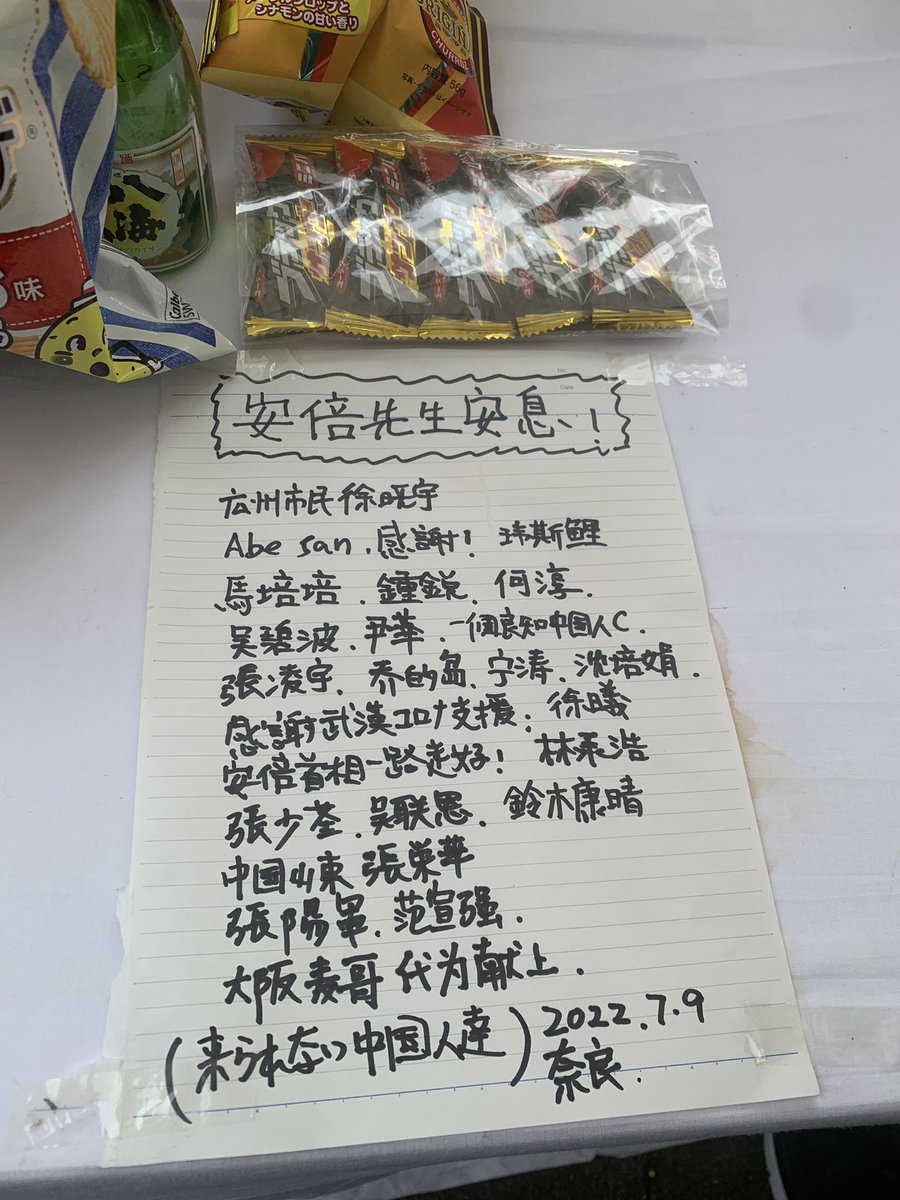 シナモンの甘い香り
CHURROS
内容量 56g
味
Calbee
ブラック
サンダー
No.
Date
安倍先生安息!
広州市民徐晄宇
Abe san、感謝! 玮斯鲤
馬培培、鍾鋭、何淳.
吴碧波、尹華、一個良知中国人C.
張凌宇、乔的岛、宁涛、沈培娟.
感謝武漢コロナ支援、徐曦
安倍首相一路走好! 林秉浩
張少荃、吴联恩、鈴木康晴
中国山東 張栄華
張陽軍、范宣强.
大阪表哥 代为献上.
(来られない中国人達) 2022.7.9
奈良.